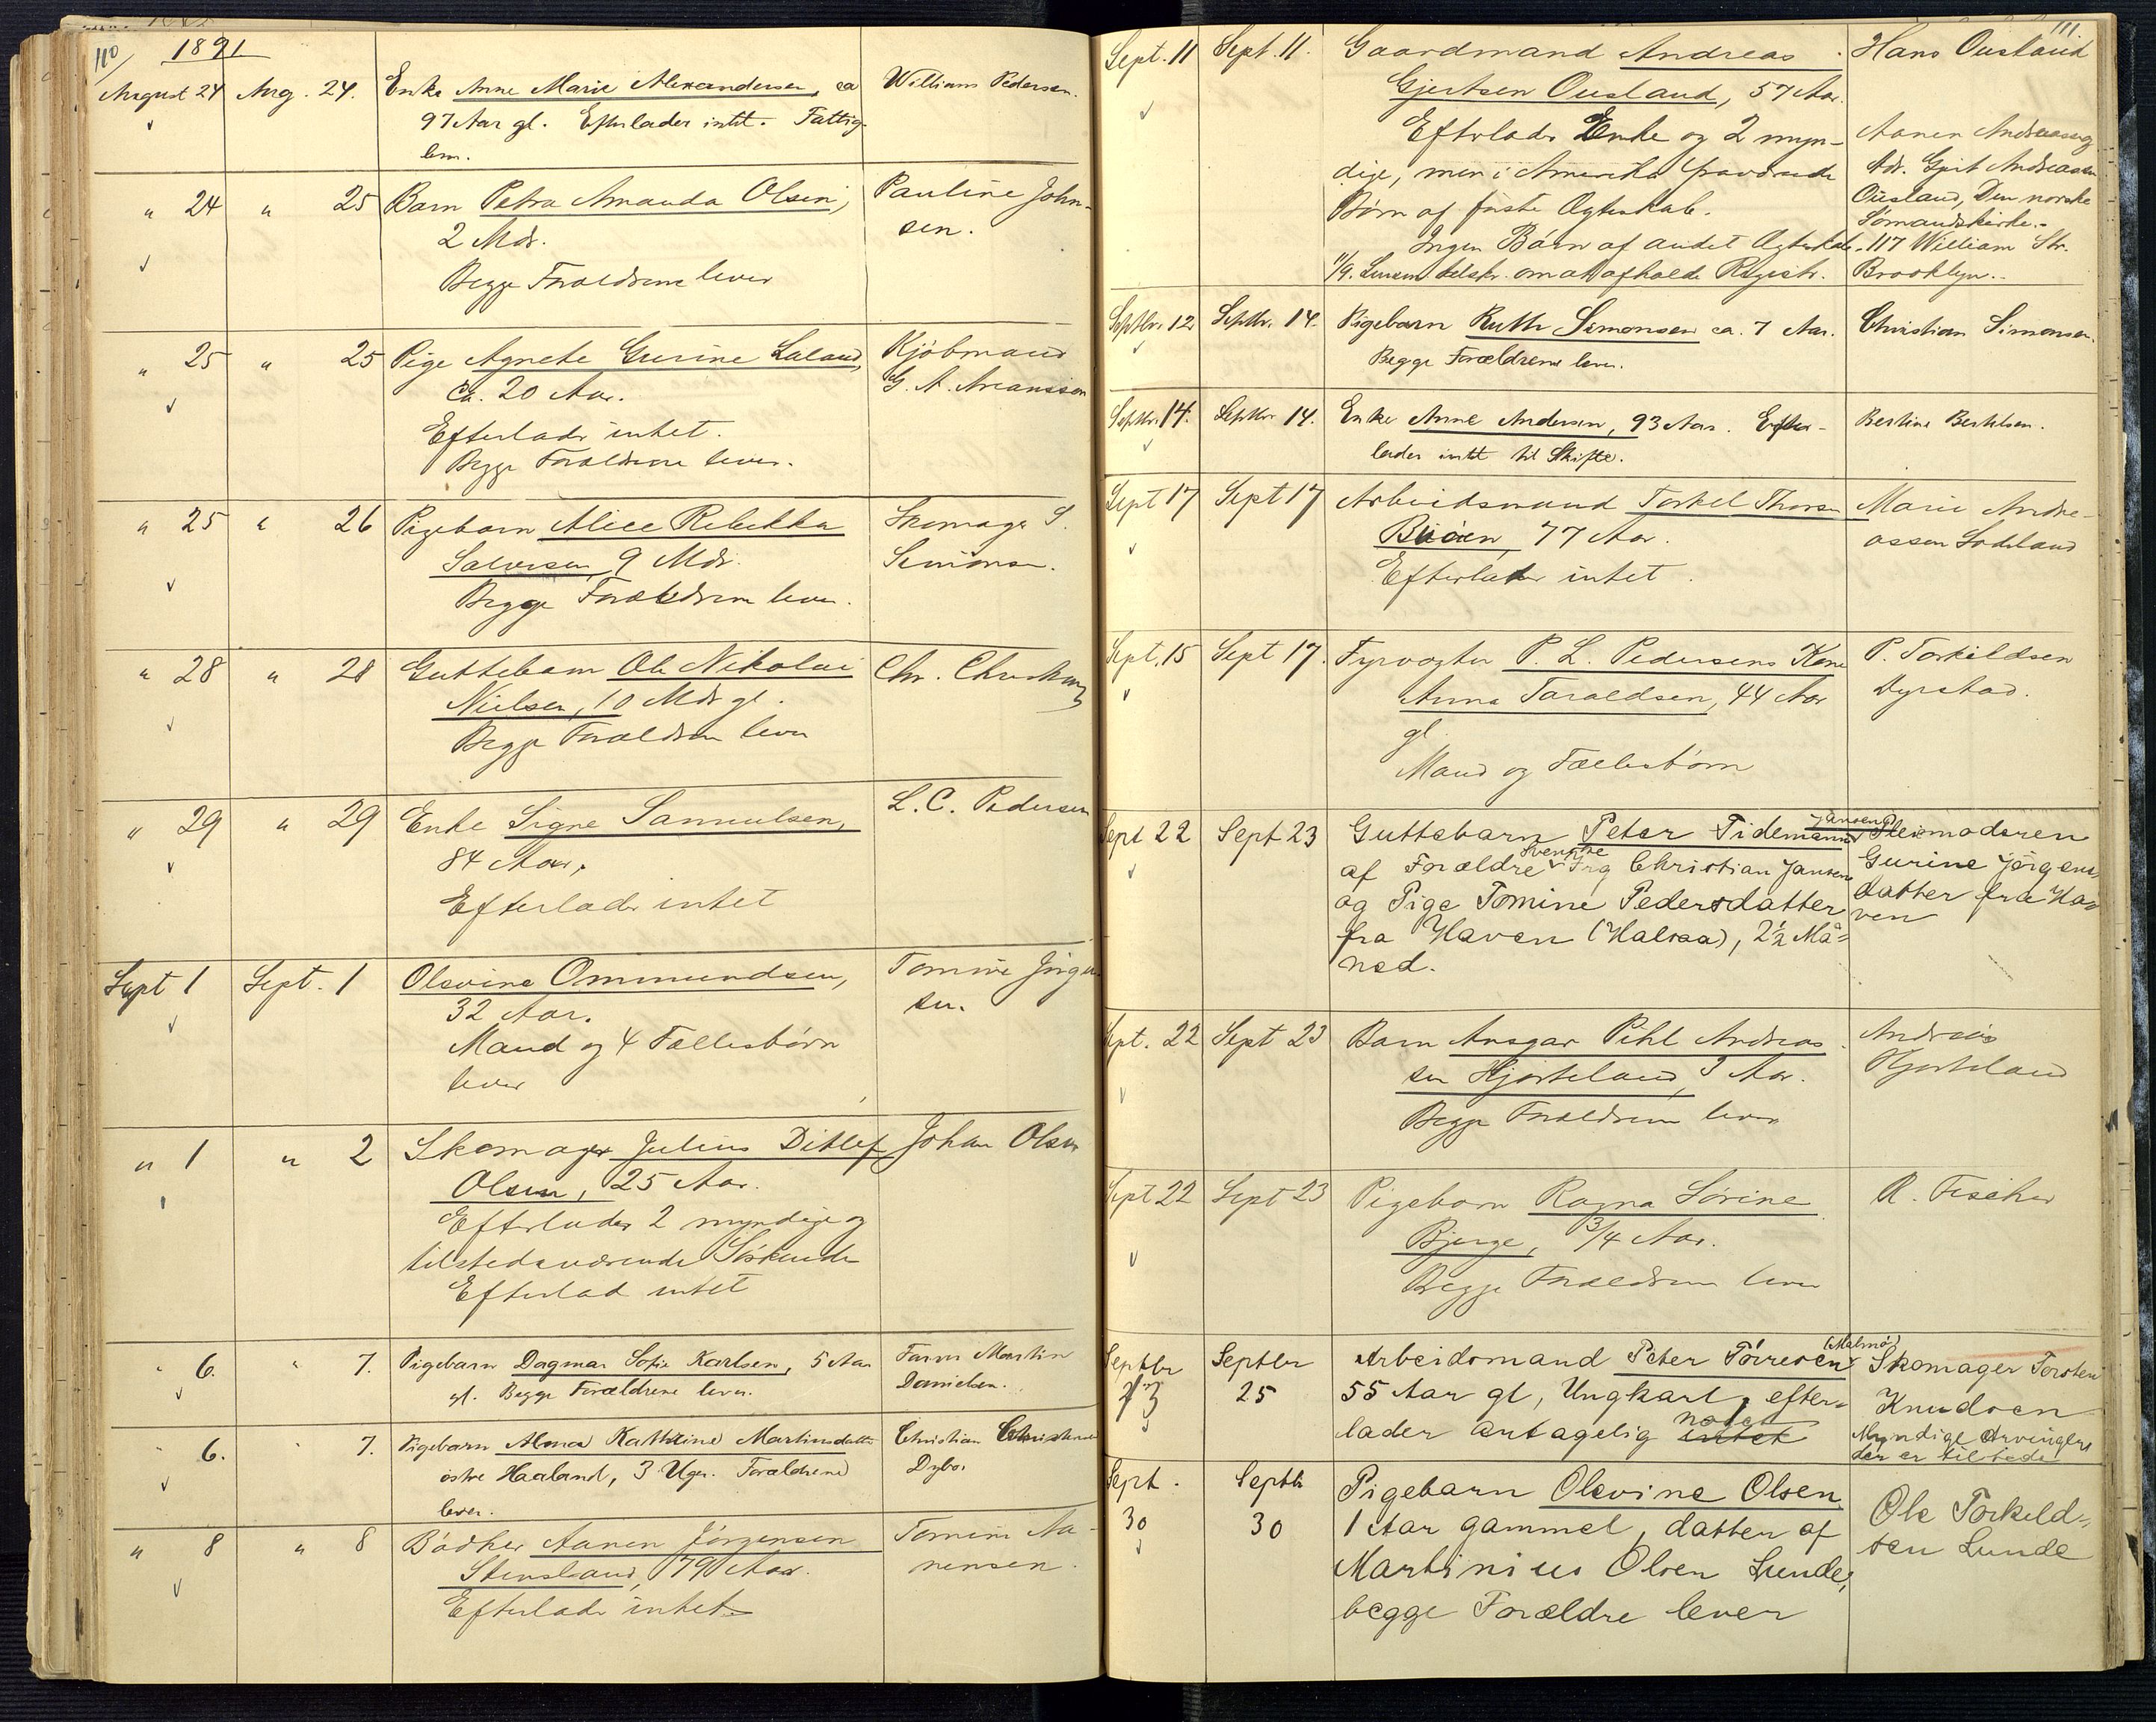 110
1891
August 24 Aug. 24. Enke Anne Marie Alexandersen, ca William Pedersen.
97 Aar gl. Efterlader intet. Fattig-
lem.
" 24 " 25 Barn Petra Amanda Olsen, Pauline John-
2 Mdr. sen.
Begge Forældrene lever
" 25 " 25 Pige Agnete Gurine Laland, Kjøbmand
ca. 20 Aar. G. A.
Efterlader intet.
Begge Forældrene lever.
" 25 " 26 Pigebarn Alice Rebekka Skomager S.
Salvesen 9 Mdr. Simonsen.
Begge Forældrene lever.
" 28 " 28 Guttebarn Ole Nikolai Chr.
Nielsen, 10 Mdr gl.
Begge Forældrene lever
" 29 " 29 Enke Signe Samuelsen, L. C. Pedersen
84 Aar.
Efterlader intet
Sept 1 Sept. 1 Olevine Ommundsen, Tomine Jørgen
32 Aar. sen.
Mand og 4 Fællesbørn
lever
" 1 " 2 Skomager Julius Ditlef Johan Olsen
Olsen, 25 Aar.
Efterlader 2 myndige og
tilstedeværende Søskende
Efterlad intet
" 6. " 7. Pigebarn Dagmar Sofie Karlsen, 5 Aar Martin
gl. Begge Forældrene lever. Danielsen.
" 6. " 7. Pigebarn Alma Kathrine Martinsdatter Christian Christensen
østre Haaland, 3 Uger. Forældrene Dybo.
lever.
" 8 " 8 Bødker Aanen Jørgensen Tomine Aa-
Stensland, 79 Aar. nensen.
Efterlader intet
111
Sept. 11 Sept. 11. Gaardmand Andreas Hans Ousland
Gjertsen Ousland, 57 Aar.
Efterlader Enke og 2 myn- Aanen Andreassen
dige, men i Amerika fraværende Adr. Gjert Andreassen
Børn af første Ægteskab. Ousland, Den norske
Sømandskirke.
Ingen Børn af andet Ægteskab. 117 William Str.
11/9. telefr. om at afholde Registr. Brooklyn.
Septbr. 12 Septbr. 14. Pigebarn Ruth Simonsen ca. 7 Aar. Christian Simonsen.
Begge Forældrene lever.
Septbr. 14. Septbr 14. Enke Anne Andersen, 93 Aar. Efter- Bertine Bertelsen.
lader intet til Skifte.
Sept 17 Sept 17 Arbeidsmand Torkel Thorsen Marie Andre-
Buøen, 77 Aar. assen Lodeland
Efterlader intet.
Sept. 15 Sept 17. Fyrvogter P. L. Pedersens Kone P. Torkildsen
Anna Taraldsen, 44 Aar Dyrstad.
gl.
Mand og Fællesbørn
Jansen
Sept 22 Sept 23 Guttebarn Peter Tidemann Steimoderen
Svenske
af Forældre Frg Christian Jansen Gurine Jörgens-
og Pige Tomine Pedersdatter datter fra Ha-
fra Haven (Halsaa), 2½ Må- ven
ned.
Sept. 22 Sept 23 Barn Ansgar Pihl Andreas- Andreas
sen Hjorteland, 3 Aar. Hjorteland
Begge Forældrene lever
Sept 22 Sept 23 Pigebarn Ragna Sørine R. Fischer
Bjerge, 3/4 Aar.
Begge Forældrene lever
(Malmø)
Septbr Septbr Arbeidsmand Peter Törresen Skomager Torsten
23 25 55 Aar gl, Ungkarl, efter- Knudsen
noget
lader antagelig intet Myndige Arvinger
der er tilstede
Sept. Septb Pigebarn Olevine Olsen Ole Torkeld-
30 30 1 Aar gammel, datter af sen Lunde
Martinius Olsen Lunde,
begge Forældre lever